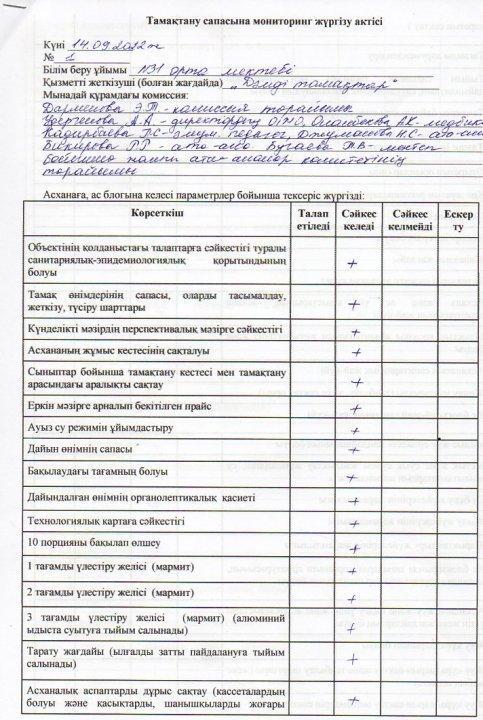 Тамақтану сапасына мониторинг жүргізу актісі
Күні 14.09.2022ж
№ 1
Білім беру ұйымы №31 орта мектебі
Қызметті жеткізуші (болған жағдайда) „Дәмді тамақтар“
Мынадай құрамдағы комиссия:
Э.Т - комиссия төрайымы
А.А. - директордың ОІЖО, АК - медбике
ГС - әлум. педагог, Джумашева Н.С - ата-ана
Бекирова ГГ - ата-ана Бугаева ТВ - мектеп
бойынша ата-аналар комитетінің
төрайымы
Асханаға, ас блогына келесі параметрлер бойынша тексеріс жүргізді:
Көрсеткіш Талап етіледі Сәйкес келеді Сәйкес келмейді Ескерту
Объектінің қолданыстағы талаптарға сәйкестігі туралы
санитариялық-эпидемиологиялық қорытындының
болуы +
Тамақ өнімдерінің сапасы, оларды тасымалдау,
жеткізу, түсіру шарттары +
Күнделікті мәзірдің перспективалық мәзірге сәйкестігі +
Асхананың жұмыс кестесінің сақталуы +
Сыныптар бойынша тамақтану кестесі мен тамақтану
арасындағы аралықты сақтау +
Еркін мәзірге арналып бекітілген прайс +
Ауыз су режимін ұйымдастыру +
Дайын өнімнің сапасы +
Бақылаудағы тағамның болуы +
Дайындалған өнімнің органолептикалық қасиеті +
Технологиялық картаға сәйкестігі +
10 порцияны бақылап өлшеу +
1 тағамды үлестіру желісі (мармит) +
2 тағамды үлестіру желісі (мармит) +
3 тағамды үлестіру желісі (мармит) (алюминий
ыдыста суытуға тыйым салынады) +
Тарату жағдайы (ылғалды затты пайдалануға тыйым
салынады) +
Асханалық аспаптарды дұрыс сақтау (кассеталардың
болуы және қасықтарды, шанышқыларды жоғары +